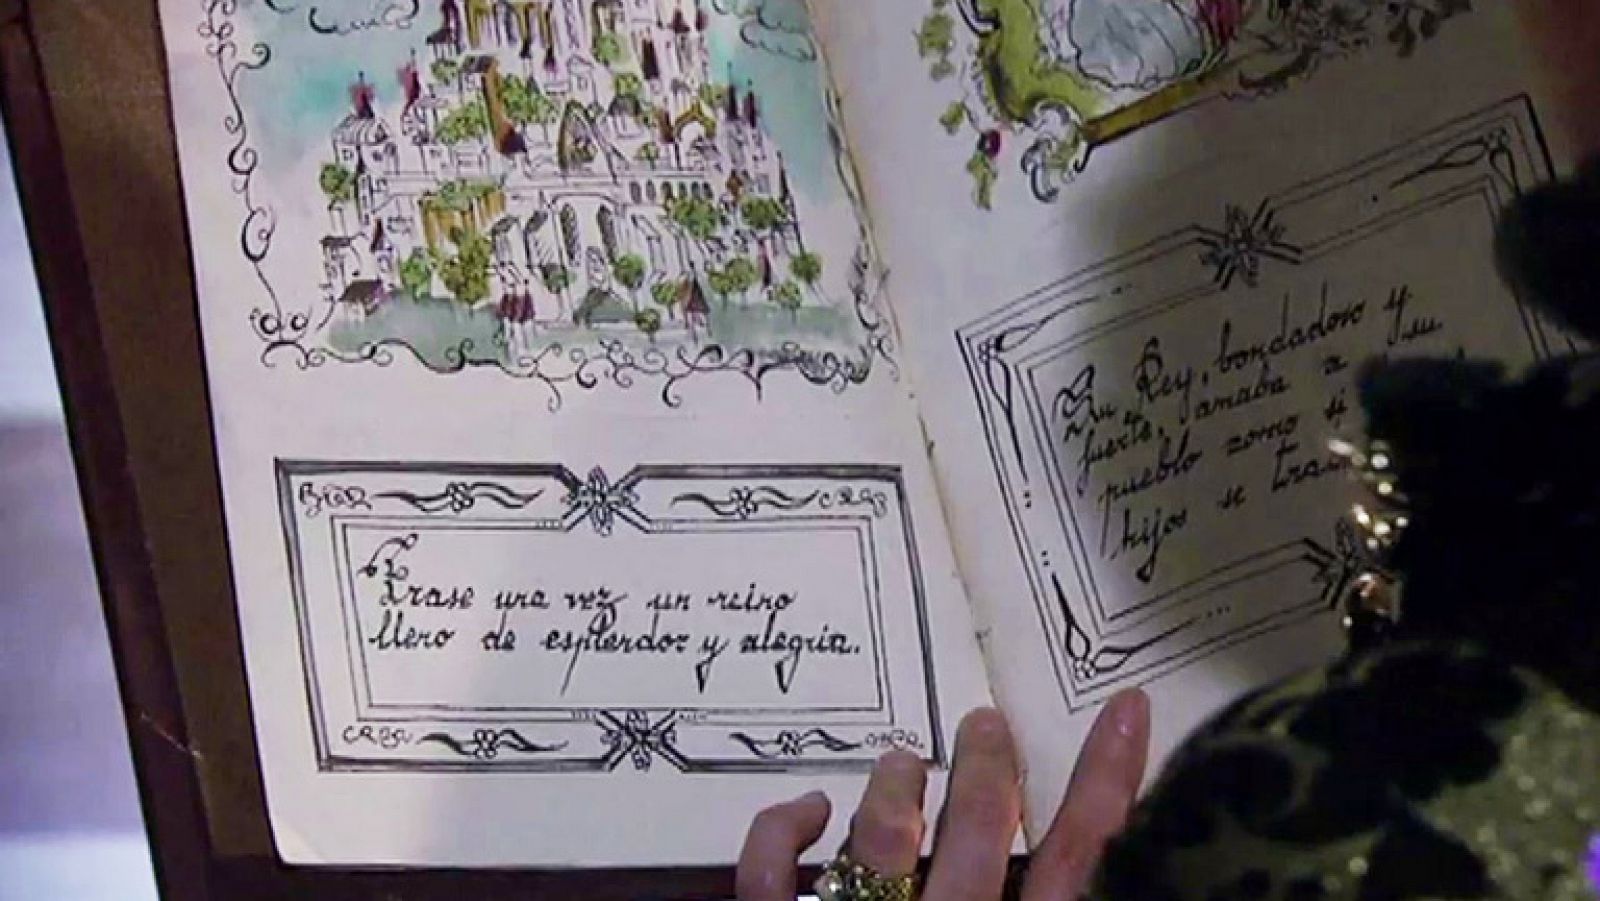 Erase una vez un reino
lleno de esplendor y alegría.
Su Rey, bondadoso y
fuerte, amaba a su
pueblo como si
hijos se tra